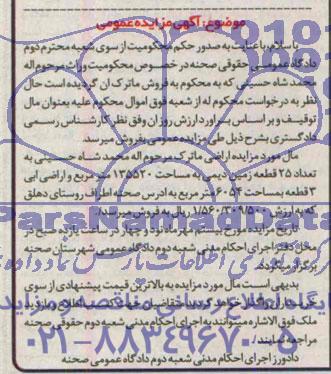 موضوع: آگهی مزایده عمومی
با سلام، با عنایت به صدور حکم محکومیت از سوی شعبه محترم دوم
دادگاه عمومی حقوقی صحنه در خصوص محکومیت وراث مرحوم اله
محمد شاه حسینی که به محکوم به فروش ماترک ان گردیده است حال
نظر به درخواست محکوم له از شعبه فوق اموال محکوم علیه بعنوان مال
توقیف و بر اساس برآورد ارزش روز آن وفق نظر کارشناس رسمی
دادگستری بشرح ذیل طی مزایده عمومی بفروش میرسد.
مال مورد مزایده اراضی ماترک مرحوم اله محمد شاه حسینی به
تعداد ۲۵ قطعه زمین دیمی به مساحت ۱۳۵۵۲۰ متر مربع و اراضی ابی
۳ قطعه بمساحت ۶۰۵۴ متر مربع به ادرس صحنه اطراف روستای دهلق
که به ارزش ریال به فروش میرسد/
تاریخ مزایده مورخ بیستم مهر ماه نود و چهار در ساعت یازده صبح در
محل دفتر اجرای احکام مدنی شعبه دوم دادگاه عمومی شهرستان صحنه
برگزار میگردد.
بدیهی است مال مورد مزایده به بالاترین قیمت پیشنهادی از سوی
ملک فوق الاشاره میتوانند به اجرای احکام مدنی شعبه دوم حقوقی صحنه
مراجعه نمایند/
دادورز اجرای احکام مدنی شعبه دوم دادگاه عمومی صحنه
ParsNamadData
۰۲۱-۸۸۳۴۹۶۷۰